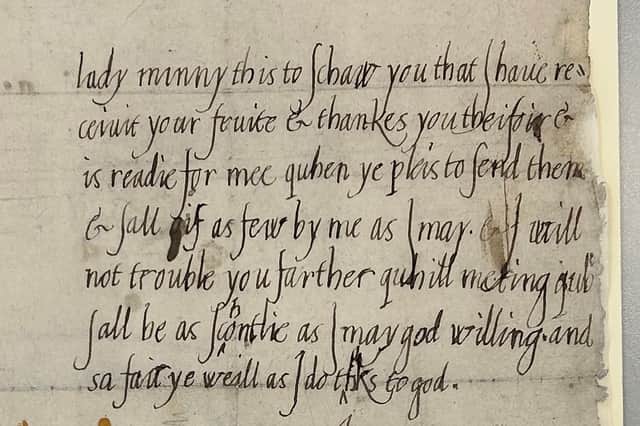 lady minny this to schaw you that I haue re-
ceiuit your fruite & thankes you theifoir &
is readie for mee quhen ye pleis to send them
& sall gif as few by me as I may. & I will
not trouble you farther quhill meting quh
sall be as schortlie as I may god willing. and
sa fair ye weill as I do thks to god.